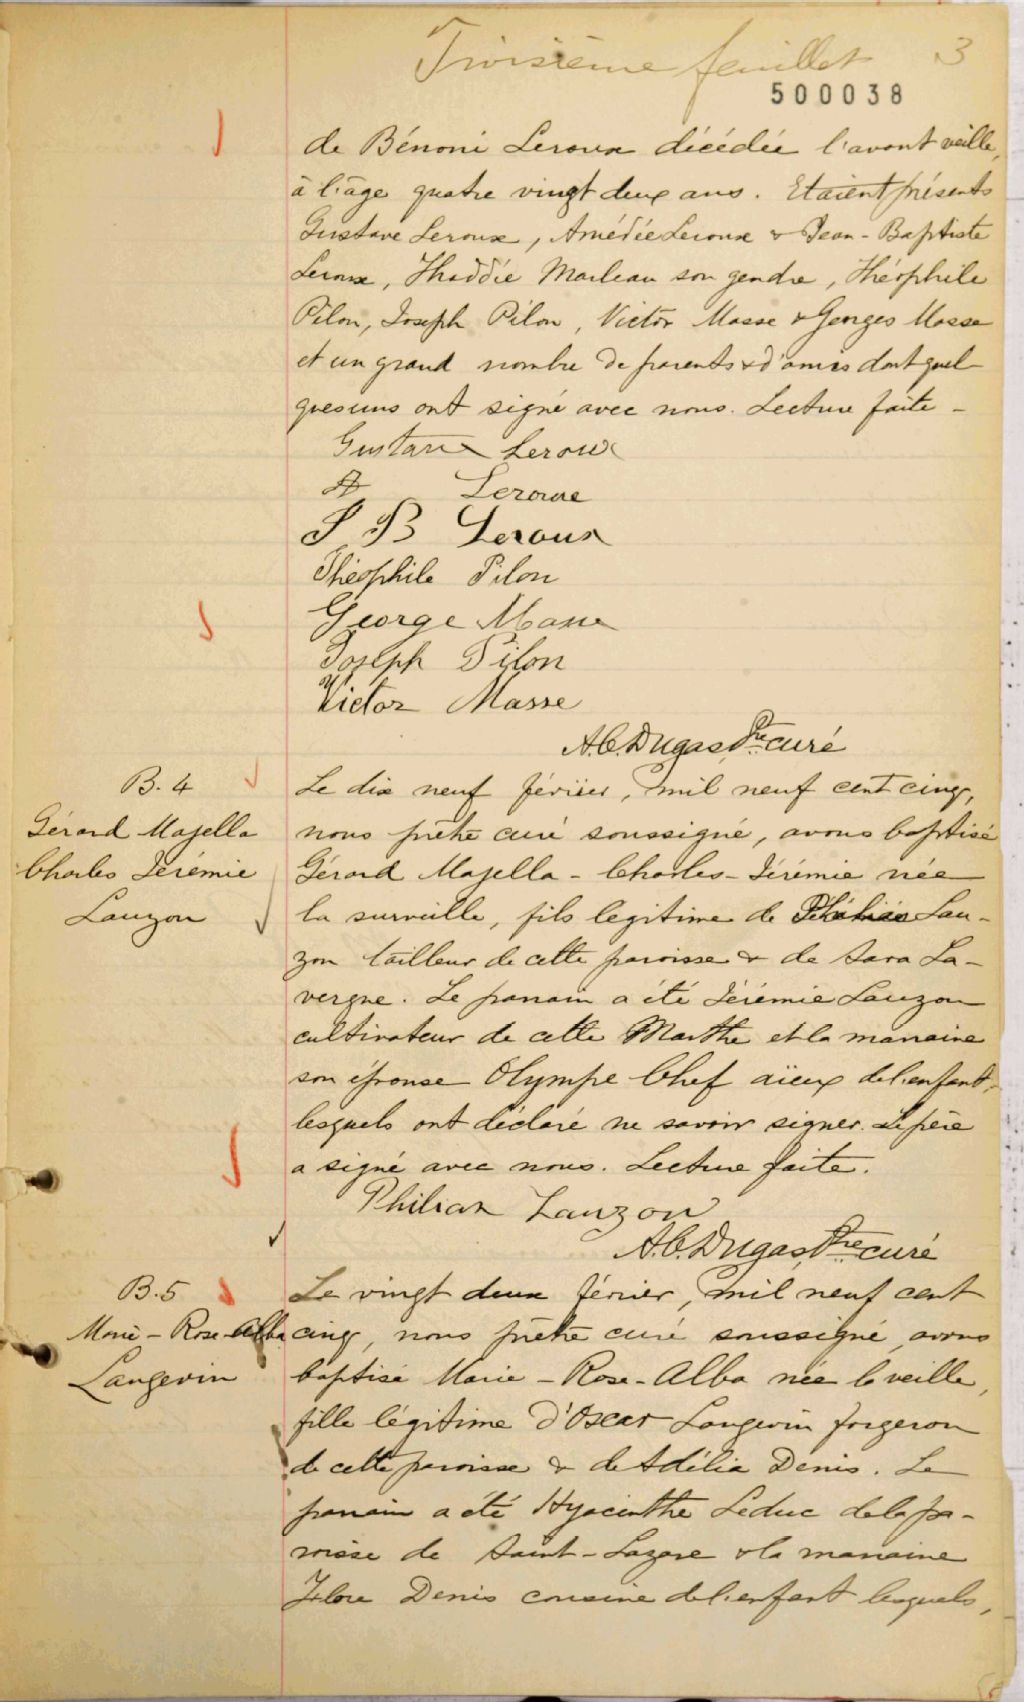 Troisième feuillet 3
500038
de Bénoni Leroux décédée l'avant veille,
à l'âge quatre vingt deux ans. Etaient présents
Gustave Leroux, Amédée Leroux & Jean-Baptiste
Leroux, Thaddée Marleau son gendre, Théophile
Pilon, Joseph Pilon, Victor Masse & Georges Masse
et un grand nombre de parents & d'amis dont quel-
ques uns ont signé avec nous. Lecture faite -
Gustave Leroux
A Leroux
J B Leroux
Théophile Pilon
George Masse
Joseph Pilon
Victor Masse
A.C. Dugas, Ptre curé
B. 4
Gérard Majella
Charles Jérémie
Lauzon
Le dix neuf février, mil neuf cent cinq,
nous prêtre curé soussigné, avons baptisé
Gérard Majella - Charles - Jérémie née
la surveille, fils legitime de Lau-
zon tailleur de cette paroisse & de Sara La-
vergne. Le parrain a été Jérémie Lauzon
cultivateur de cette Marthe et la marraine
son épouse Olympe Chef aïeux de l'enfant,
lesquels ont déclaré ne savoir signer. Le père
a signé avec nous. Lecture faite.
Philias Lauzon
A.C. Dugas, Ptre curé
B. 5
Marie - Rose - Alba
Langevin
Le vingt deux février, mil neuf cent
cinq, nous prêtre curé soussigné avons
baptisé Marie - Rose - Alba née la veille,
fille légitime d'Oscar Langevin forgeron
de cette paroisse & de Adélia Denis. Le
parrain a été Hyacinthe Leduc de la pa-
roisse de Saint-Lazare & la marraine
Flore Denis cousine de l'enfant lesquels,